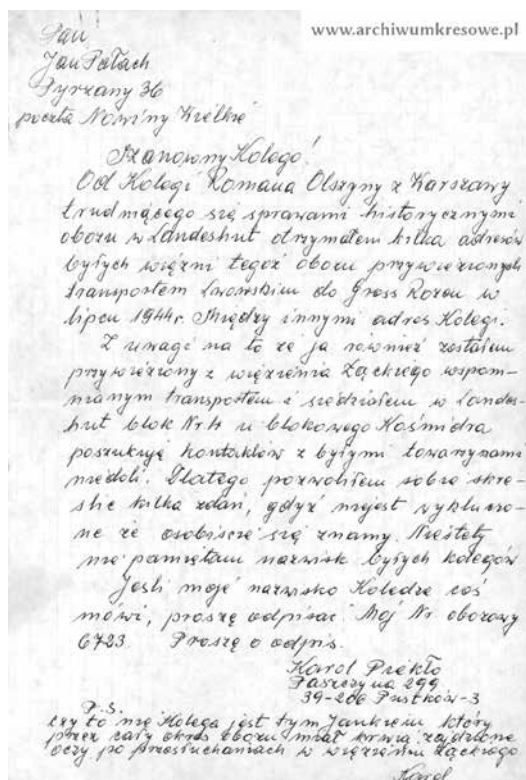 www.archiwumkresowe.pl
Pan
Jan Pałach
Pyrzany 36
poczta Nowiny Wielkie
Szanowny Kolego!
Od Kolegi Romana Olszyny z Warszawy
trudniącego się sprawami historycznymi
obozu w Landeshut otrzymałem kilka adresów
byłych więźni tegoż obozu przywiezionych
transportem Lwowskim do Gross Rozen w
lipcu 1944r. Między innymi adres Kolegi.
Z uwagi na to że ja również zostałem
przywieziony z więzienia Łąckiego wspom-
nianym transportem i siedziałem w Landes-
hut blok Nr 4 u blokowego Kośmidra
poszukuję kontaktów z byłymi towarzyszami
niedoli. Dlatego pozwoliłem sobie skre-
ślić kilka zdań, gdyż niejest wykluczo-
ne że osobiście się znamy. Niestety
nie pamiętam nazwisk byłych kolegów
Jeśli moje nazwisko Koledze coś
mówi, proszę odpisać. Mój Nr obozowy
6723. Proszę o odpis.
Karol Piekło
Paszczyna 299
39-206 Pustków-3
P.S.
czy to nie Kolega jest tym Jankiem który
przez cały okres obozu miał krwią zajdzione
oczy po przesłuchaniach w więzieniu Łąckiego
Karol